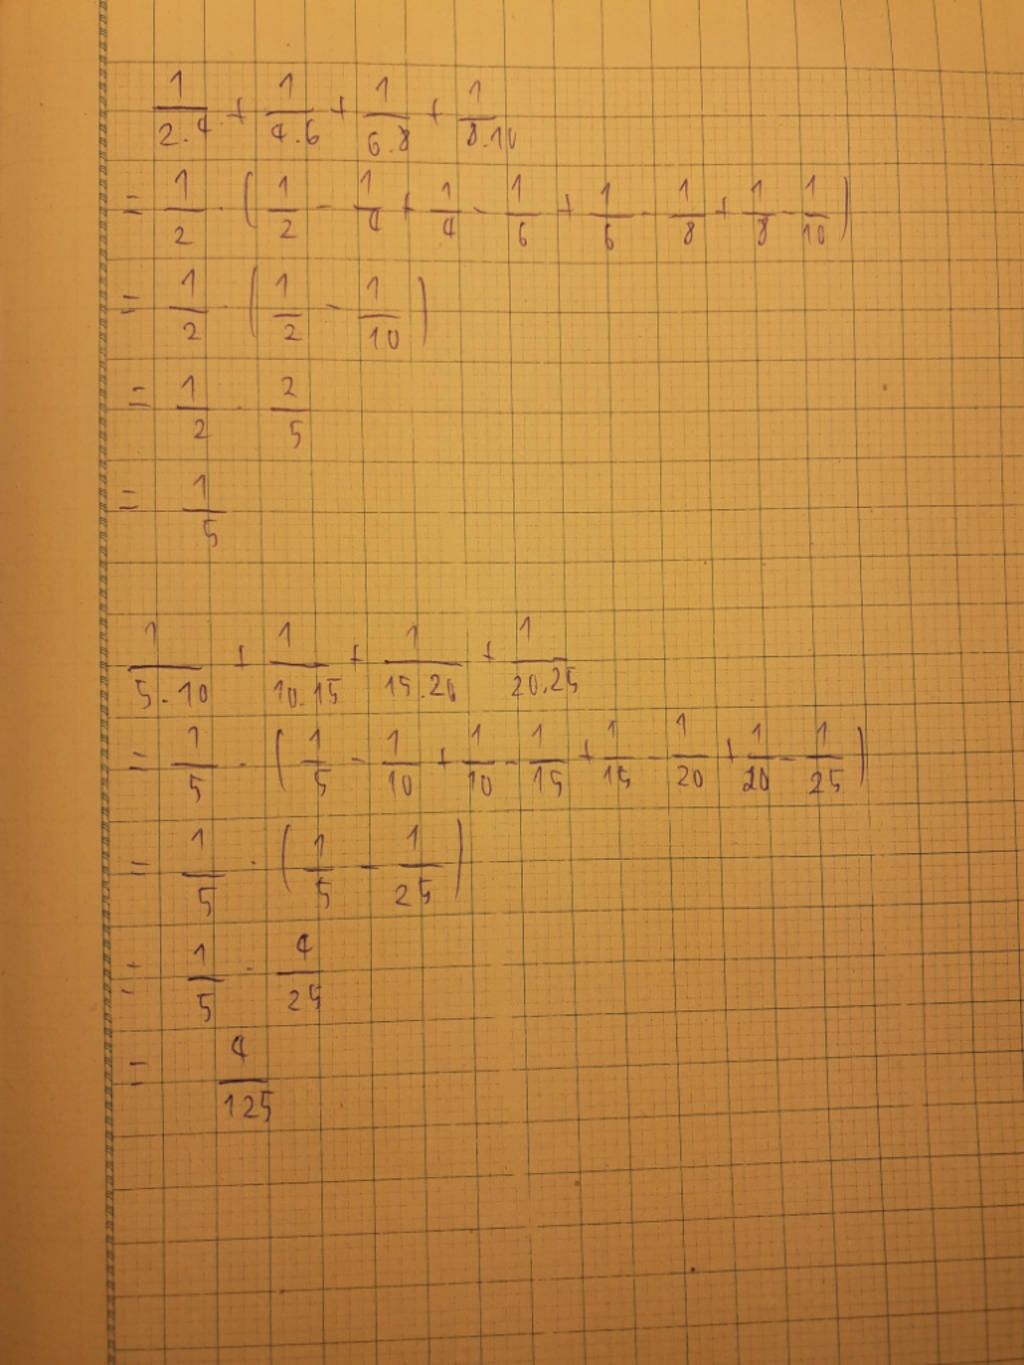 1/2.4 + 1/4.6 + 1/6.8 + 1/8.10
= 1/2 . (1/2 - 1/4 + 1/4 - 1/6 + 1/6 - 1/8 + 1/8 - 1/10)
= 1/2 . (1/2 - 1/10)
= 1/2 . 2/5
= 1/5
1/5.10 + 1/10.15 + 1/15.20 + 1/20.25
= 1/5 . (1/5 - 1/10 + 1/10 - 1/15 + 1/15 - 1/20 + 1/20 - 1/25)
= 1/5 . (1/5 - 1/25)
= 1/5 . 4/25
= 4/125